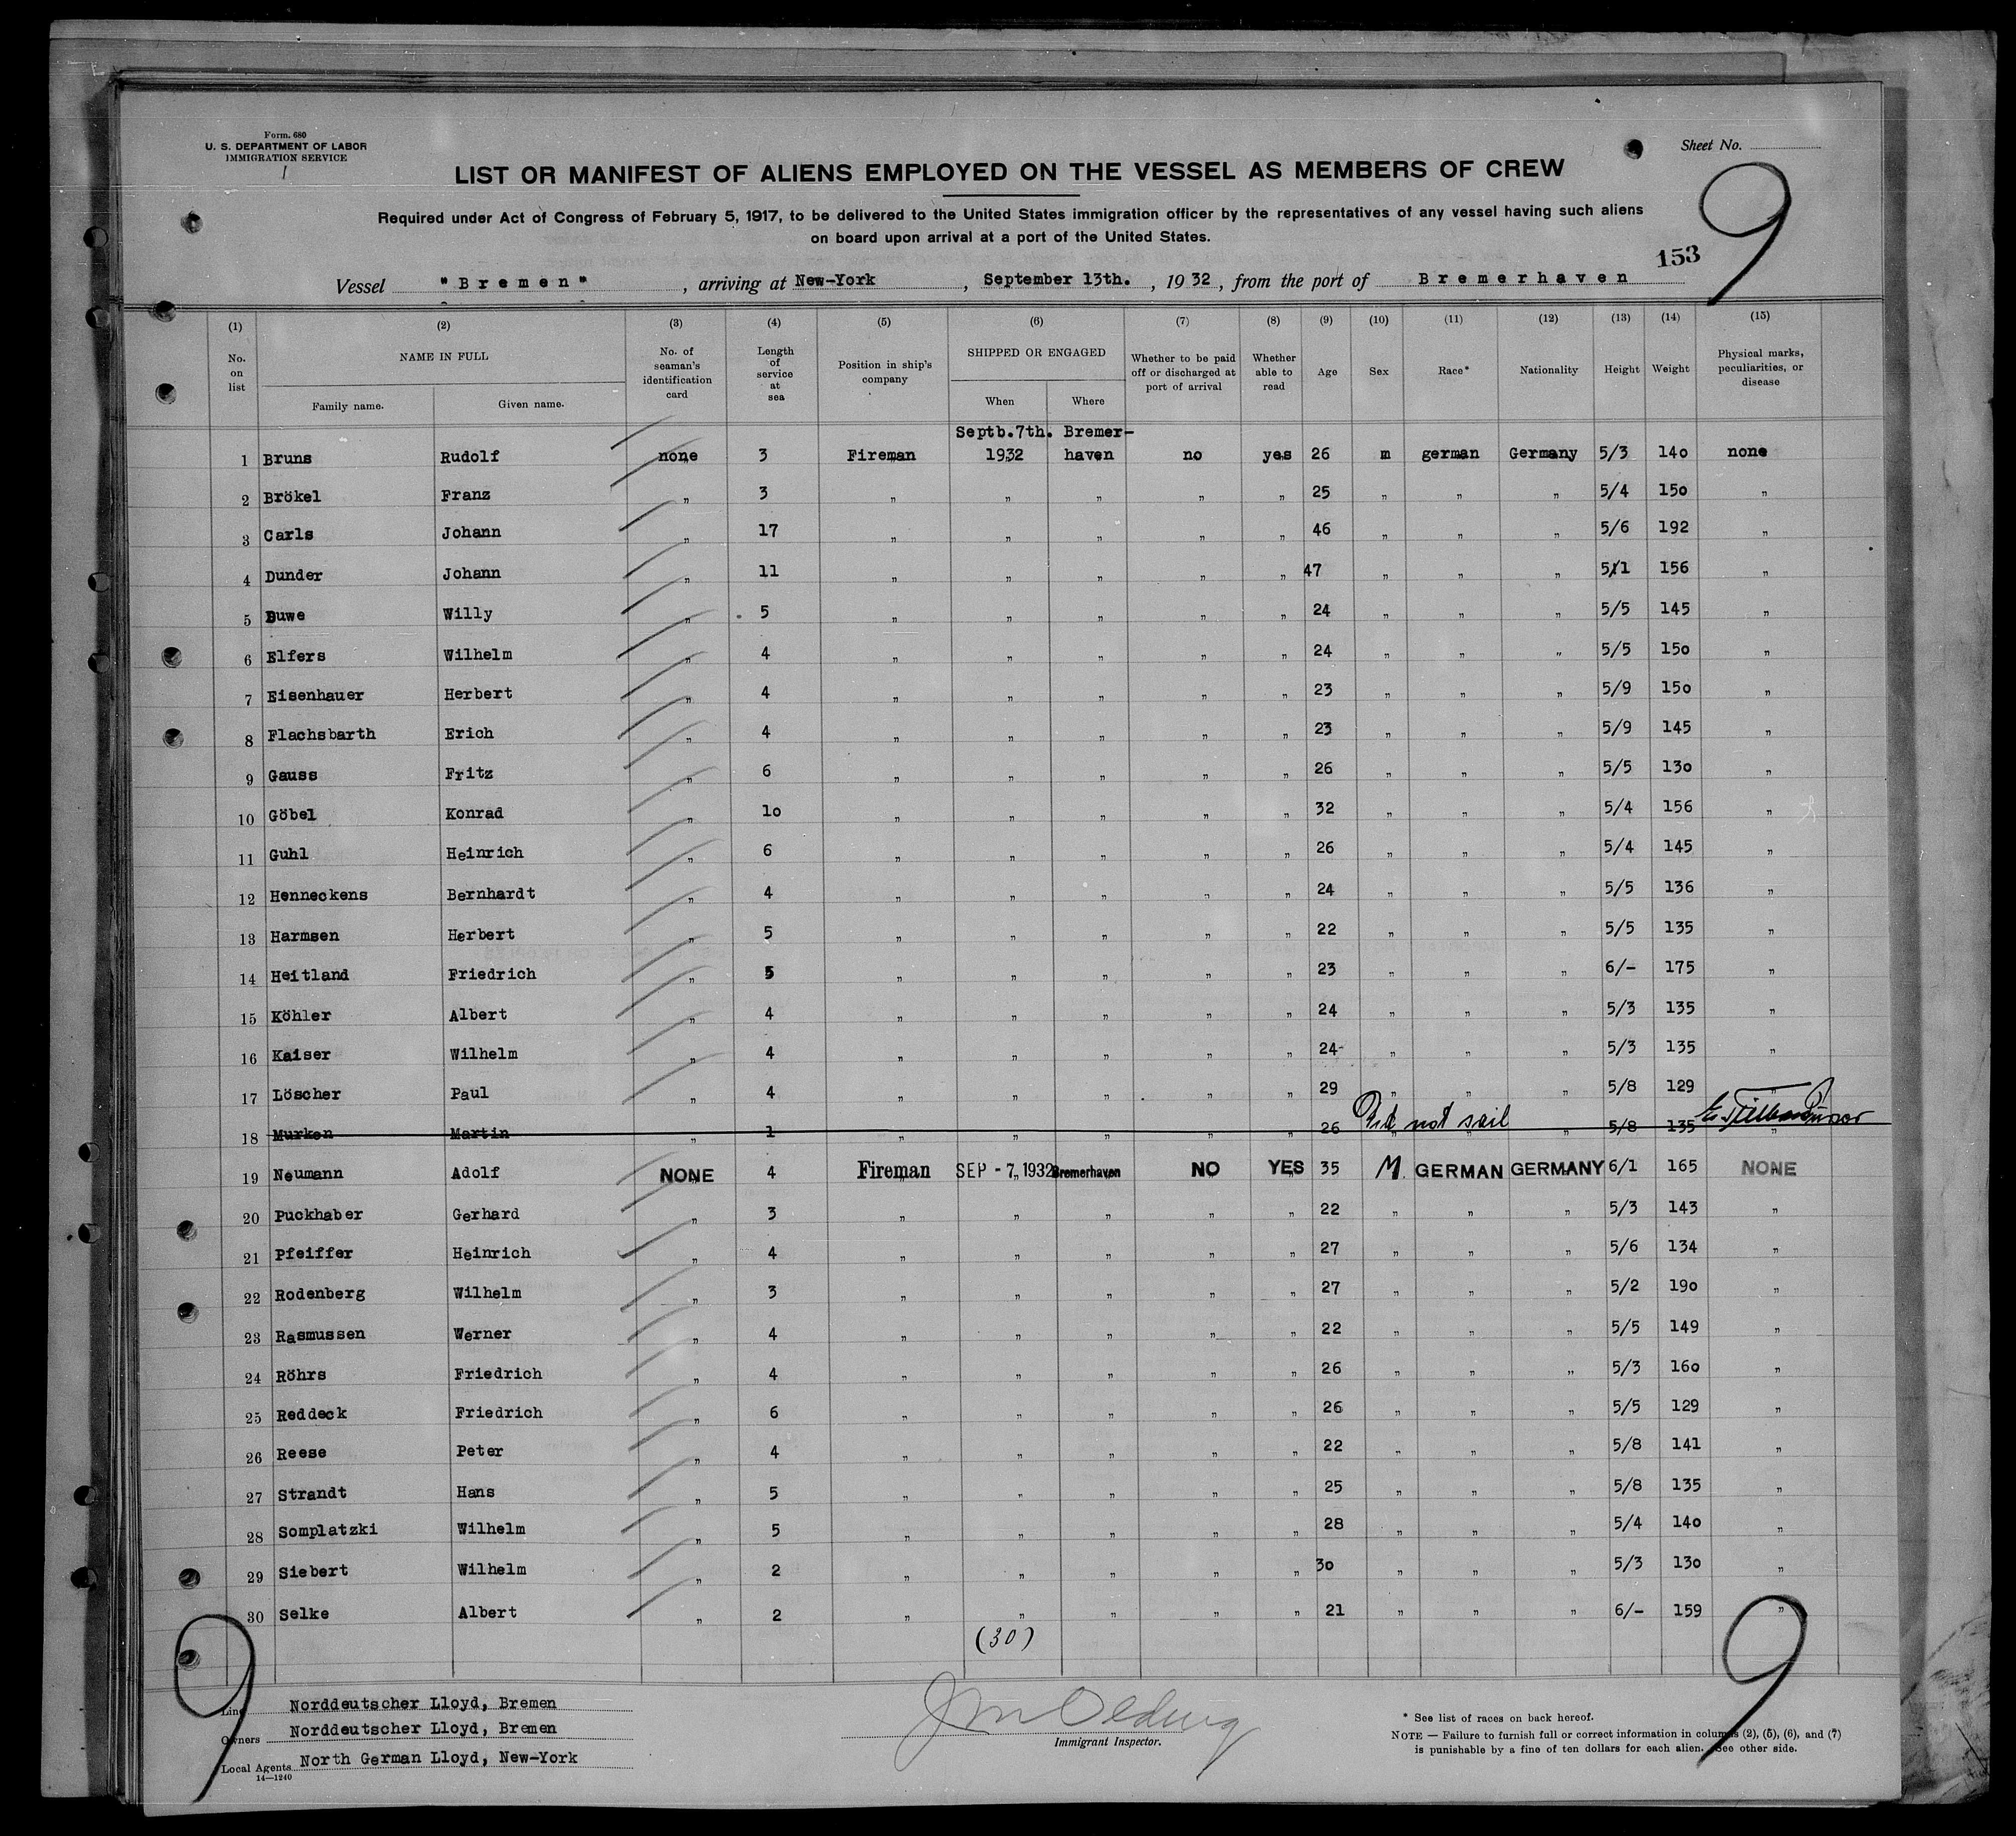 Form. 680
U. S. DEPARTMENT OF LABOR
IMMIGRATION SERVICE
1
Sheet No.
9
LIST OR MANIFEST OF ALIENS EMPLOYED ON THE VESSEL AS MEMBERS OF CREW
Required under Act of Congress of February 5, 1917, to be delivered to the United States immigration officer by the representatives of any vessel having such aliens
on board upon arrival at a port of the United States.
153
Vessel "Bremen", arriving at New-York, September 13th., 1932, from the port of Bremerhaven
(1) (2) (3) (4) (5) (6) (7) (8) (9) (10) (11) (12) (13) (14) (15)
No. on list NAME IN FULL Family name. Given name. No. of seaman's identification card Length of service at sea Position in ship's company SHIPPED OR ENGAGED When Where Whether to be paid off or discharged at port of arrival Whether able to read Age Sex Race* Nationality Height Weight Physical marks, peculiarities, or disease
Septb.7th. Bremer-
1 Bruns Rudolf none 3 Fireman 1932 haven no yes 26 m german Germany 5/3 140 none
2 Brökel Franz " 3 " " " " " 25 " " " 5/4 150 "
3 Carls Johann " 17 " " " " " 46 " " " 5/6 192 "
4 Dunder Johann " 11 " " " " " 47 " " " 5/1 156 "
5 Duwe Willy " 5 " " " " " 24 " " " 5/5 145 "
6 Elfers Wilhelm " 4 " " " " " 24 " " " 5/5 150 "
7 Eisenhauer Herbert " 4 " " " " " 23 " " " 5/9 150 "
8 Flachsbarth Erich " 4 " " " " " 23 " " " 5/9 145 "
9 Gauss Fritz " 6 " " " " " 26 " " " 5/5 130 "
10 Göbel Konrad " 10 " " " " " 32 " " " 5/4 156 "
11 Guhl Heinrich " 6 " " " " " 26 " " " 5/4 145 "
12 Henneckens Bernhardt " 4 " " " " " 24 " " " 5/5 136 "
13 Harmsen Herbert " 5 " " " " " 22 " " " 5/5 135 "
14 Heitland Friedrich " 5 " " " " " 23 " " " 6/- 175 "
15 Köhler Albert " 4 " " " " " 24 " " " 5/3 135 "
16 Kaiser Wilhelm " 4 " " " " " 24 " " " 5/3 135 "
17 Löscher Paul " 4 " " " " " 29 " " " 5/8 129 "
Did not sail
18 Murken Martin " 1 " " " " " 26 " " " 5/8 135 "
19 Neumann Adolf NONE 4 Fireman SEP - 7, 1932 Bremerhaven NO YES 35 M. GERMAN GERMANY 6/1 165 NONE
20 Puckhaber Gerhard " 3 " " " " " 22 " " " 5/3 143 "
21 Pfeiffer Heinrich " 4 " " " " " 27 " " " 5/6 134 "
22 Rodenberg Wilhelm " 3 " " " " " 27 " " " 5/2 190 "
23 Rasmussen Werner " 4 " " " " " 22 " " " 5/5 149 "
24 Röhrs Friedrich " 4 " " " " " 26 " " " 5/3 160 "
25 Reddeck Friedrich " 6 " " " " " 26 " " " 5/5 129 "
26 Reese Peter " 4 " " " " " 22 " " " 5/8 141 "
27 Strandt Hans " 5 " " " " " 25 " " " 5/8 135 "
28 Somplatzki Wilhelm " 5 " " " " " 28 " " " 5/4 140 "
29 Siebert Wilhelm " 2 " " " " " 30 " " " 5/3 130 "
30 Selke Albert " 2 " " " " " 21 " " " 6/- 159 "
(30)
9
9
Line Norddeutscher Lloyd, Bremen
Owners Norddeutscher Lloyd, Bremen
Local Agents North German Lloyd, New-York
14—1240
Immigrant Inspector.
* See list of races on back hereof.
NOTE — Failure to furnish full or correct information in columns (2), (5), (6), and (7)
is punishable by a fine of ten dollars for each alien. See other side.